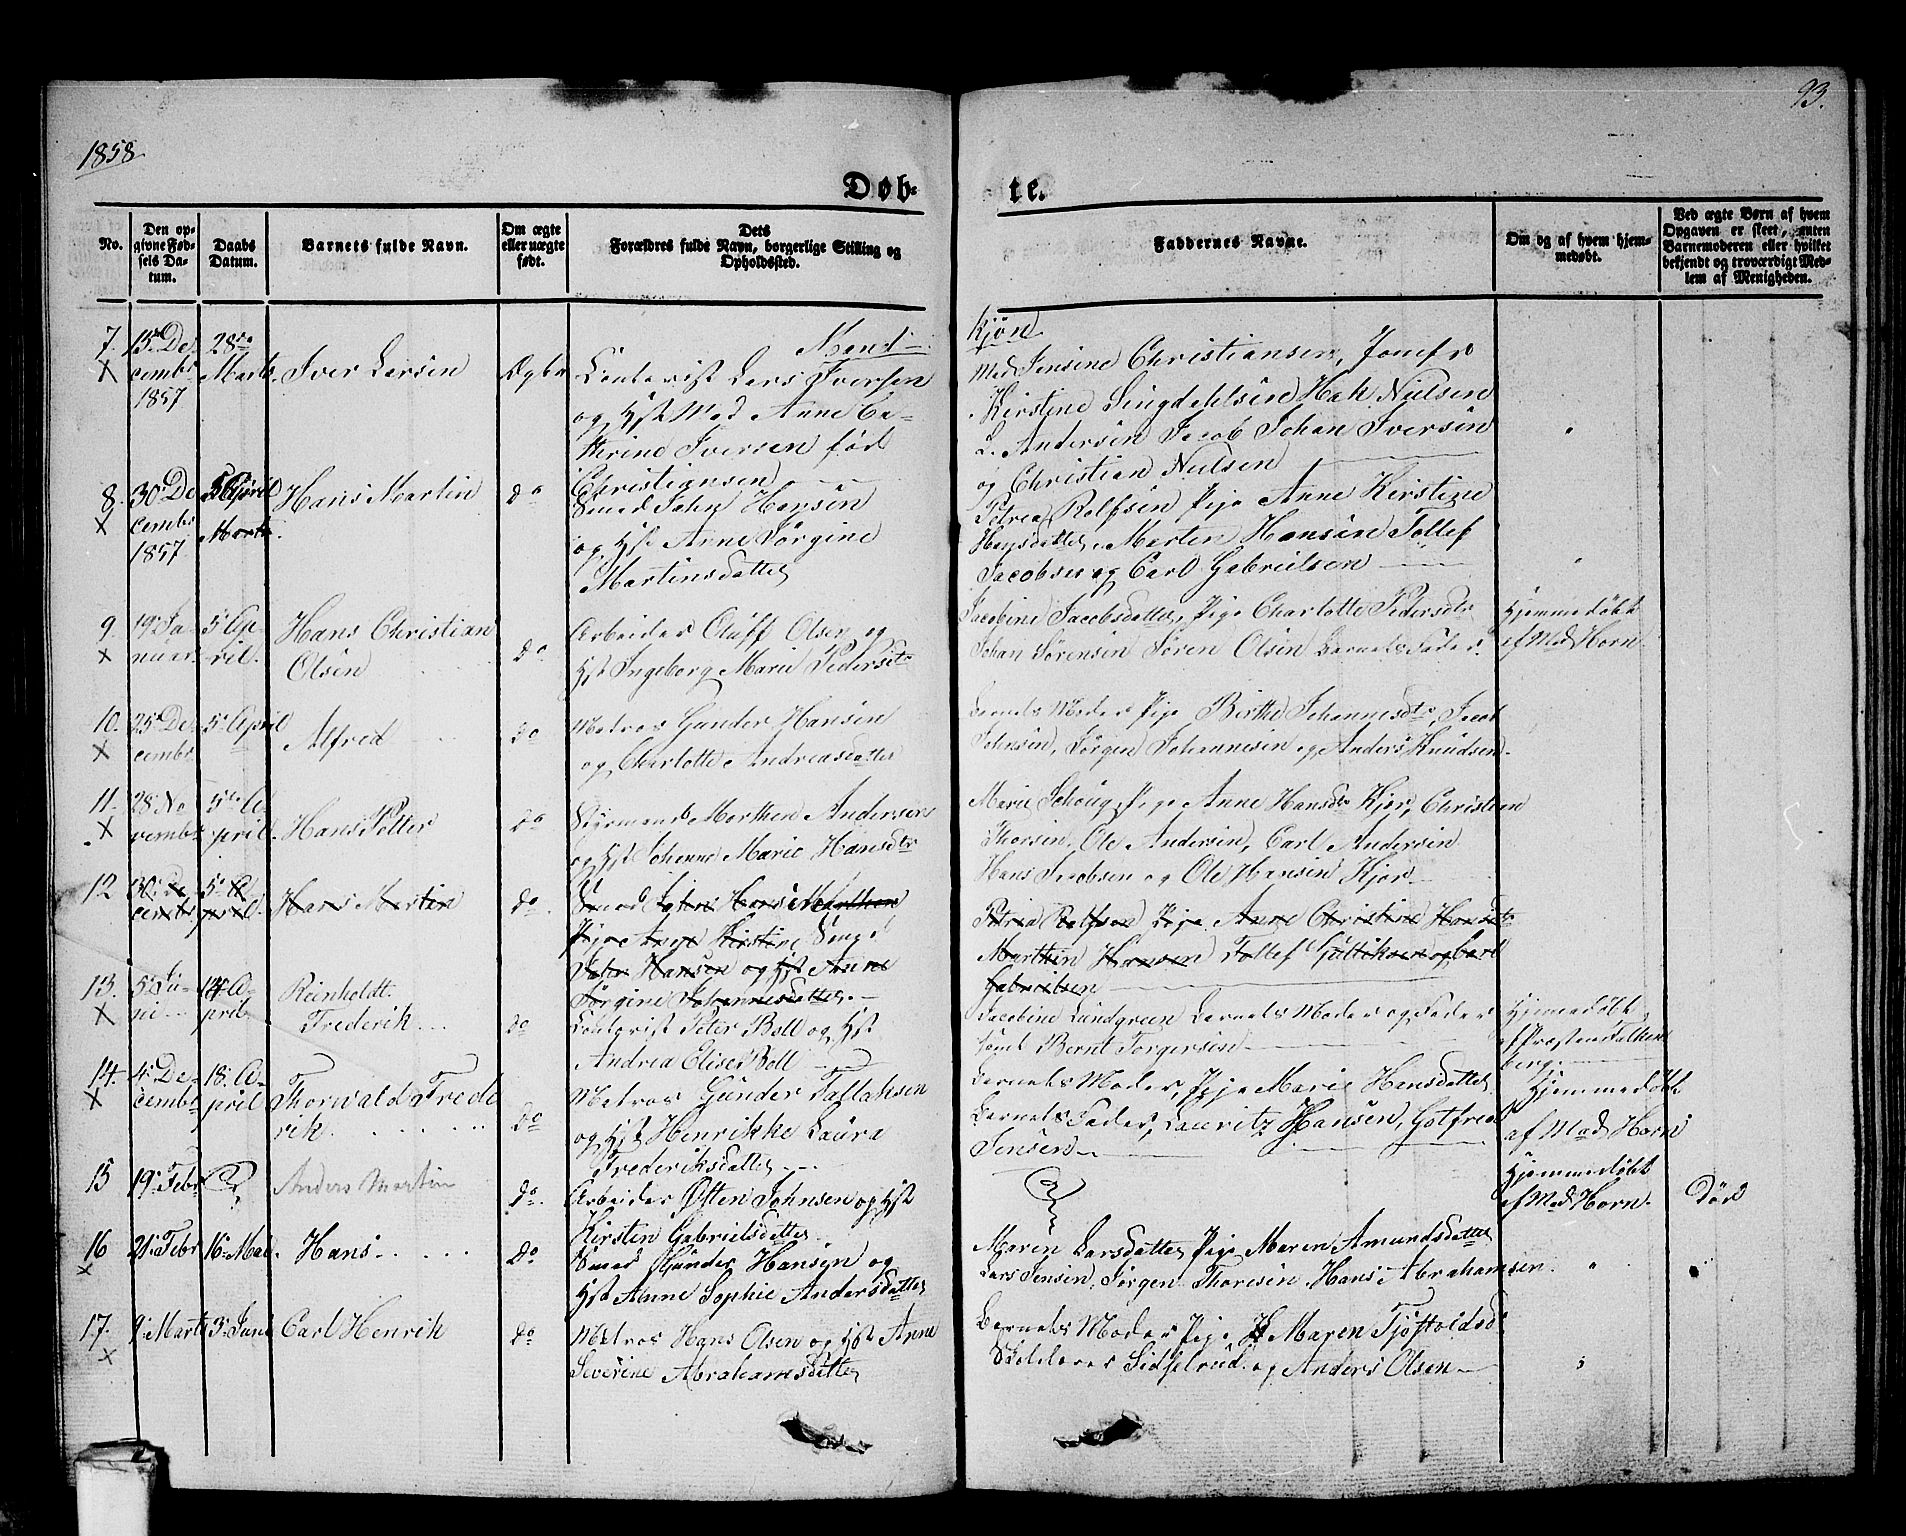 1858
93.
Døb-
te.
No.
Den op-
givne Fød-
sels Da-
tum.
Daabs
Datum.
Barnets fulde Navn.
Om ægte
eller uægte
født.
Dets
Forældres fulde Navn, borgerlige Stilling og
Opholdssted.
Faddernes Navne.
Om og af hvem hjem-
medøbt.
Ved ægte Børn af hvem
Opgaven er skeet, enten
Barnemoderen eller hvilket
bekjendt og troværdigt Med-
lem af Menigheden.
Mand-
Kjøn
7.
X
15. De-
cembr
1857
28de
Marts.
Iver Larsen
Ægte
Contorist Lars Iversen
og Hst Mad Anne Ca-
thrine Iversen fød
Christiansen
Mad Jensine Christiansen, Jomfr
Kirstine Hak Nielsen
L. Andersen Jacob Johan Iversen
og Christian Nielsen
8.
X
30. De
cembr
1857
5 April
Marts.
Hans Martin
do
Smed John Hansen
og Hst Anne Jørgine
Martinsdatter
Petrea Rolfsen Pige Anne Kirstine
Hansdatter, Marten Hansen Tollef
Jacobsen og Carl Gabrielsen
9.
X
19. Ja-
nuar.
5. Ap-
ril.
Hans Christian
Olsen
do
Arbeider Oluff Olsen og
Hst Ingeborg Marie Pedersdtr
Jacobine Jacobsdatter, Pige Charlotte Pedersdtr
Johan Sørensen Søren Olsen Barnets Fader.
Hjemmedøbt
af Mad Horn.
10.
X
25. De-
cembr.
5. April
Alfred
do
Matros Gunder Hansen
og Charlotte Andreasdatter
Barnets Moder Pige Birthe Johannesdtr, Jacob
Johnsen, Jørgen Johannesen og Anders Knudsen.
11.
X
28. No
vembr.
5te A-
pril.
Hans Petter
do
Styrmand Morthen Andersen
og Hst Johanne Marie Hansdtr
Marie Schoug, Pige Anne Hansdtr Kjær, Christian
Thorsen, Ole Andersen, Carl Andersen
Hans Jacobsen og Ole Hansen Kjær
12
30. De
cembr
5. A
pril.
Hans Martin
do.
Pige Kirstine
John Hansen og Hst Anne
Jørgine Johannesdatter.
Petrea Rolfsen Pige Anne Christine Hansdtr
Marthin Hansen Tollef og Carl
Gabrielsen
13.
X
5. Ju-
ni
14 A-
pril
Reinholdt
Frederik
do
Contorist Peter Boll og Hst
Andrea Elise Boll
Jacobine Lundgreen Barnets Moder og Fader
samt Bernt Torgersen
Hjemmedøbt
af Præsten Falken
berg.
14.
X
4. De-
cembr
18. A-
pril
Thorwald Frede
rik.
do
Matros Gunder Tallaksen
og Hst Henrikke Laura
Frederiksdatter
Barnets Moder, Pige Marie Hansdatter
Barnets Fader, Lauritz Hansen, Gotfred
Jensen
Hjemmedøbt
af Mad Horn
15
19. Febr
Anders Martin
do.
Arbeider Østen Johnsen og Hst
Kirsten Gabrielsdatter
Hjemmedøbt
af Mad Horn.
Død
16
X
21. Febr
16. Mai
Hans
do
Smed Gunder Hansen og
Hst Anne Sophie Andersdatter
Maren Larsdatter Pige Maren Amundsdatter
Lars Jensen, Jørgen Thoresen Hans Abrahamsen.
17.
X
9. Marts
3. Juni
Carl Henrik
do
Matros Hans Olsen og Hst Anne
Severine Abrahamsdatter
Barnets Moder Pige Maren Tjøstolsd
Sidselrud og Anders Olsen